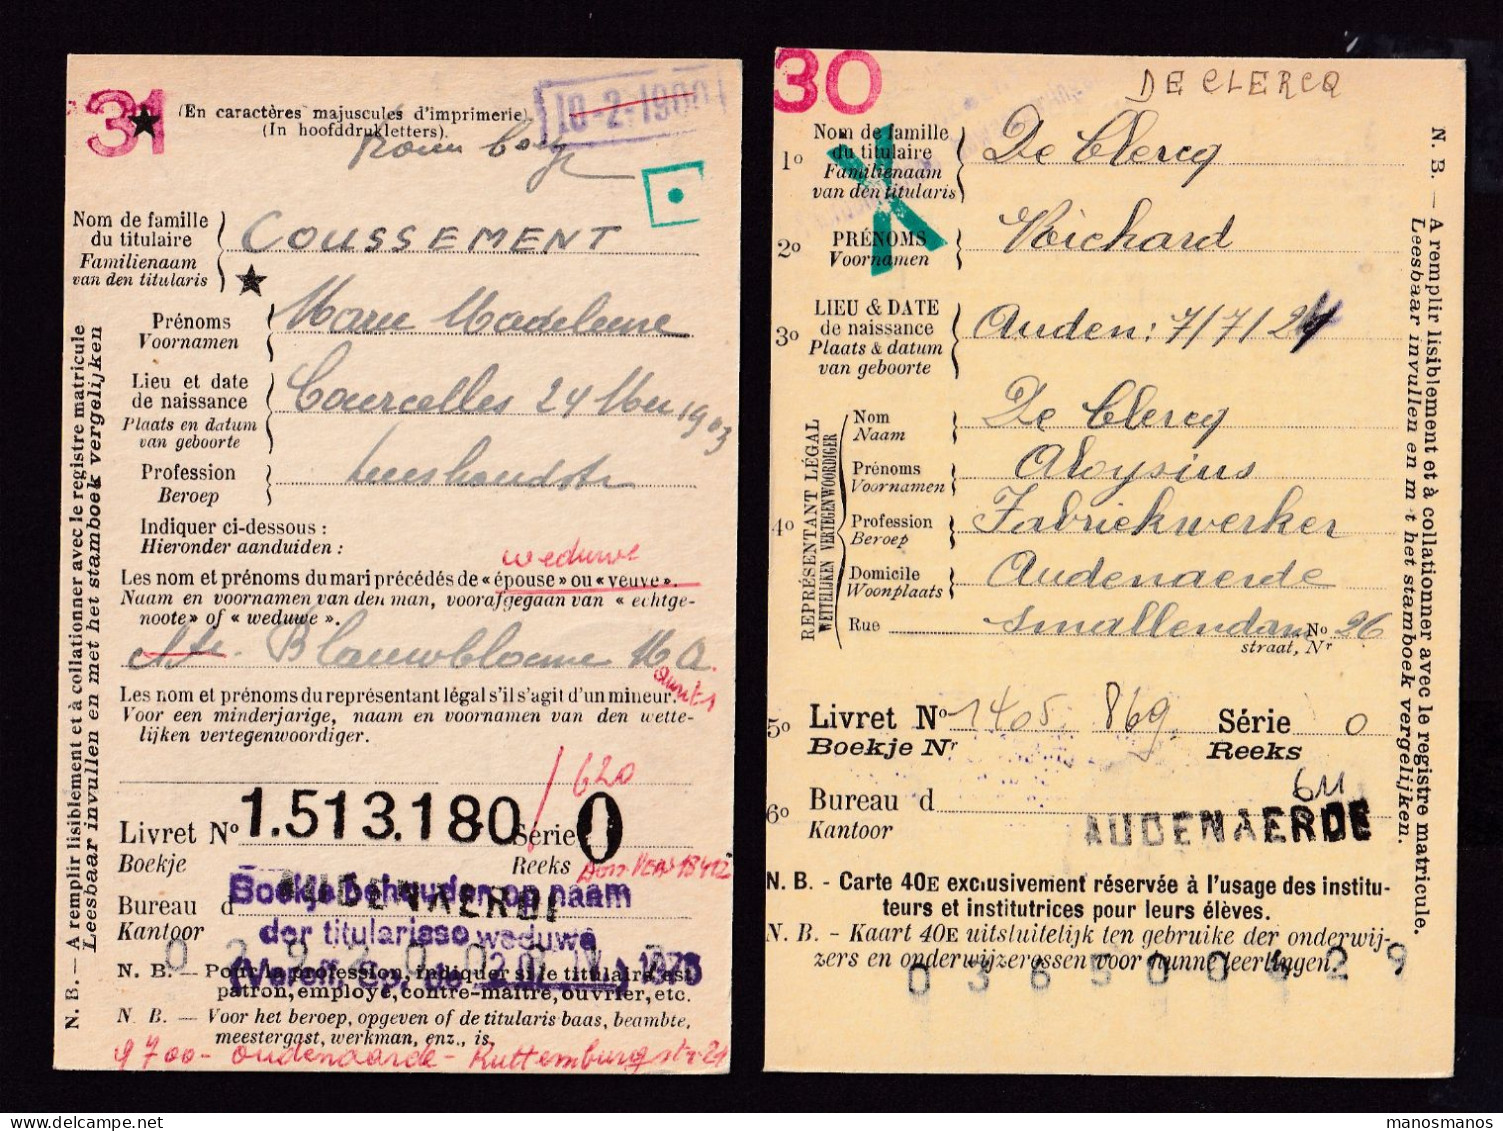 31
(En caractères majuscules d'imprimerie).
(In hoofddrukletters).
10-2-1960
Nom de famille
du titulaire
Familienaam
van den titularis
COUSSEMENT
Prénoms
Voornamen
Marie Madeleine
Lieu et date
de naissance
Plaats en datum
van geboorte
Courcelles 24 Mei 1903
Profession
Beroep
Indiquer ci-dessous :
Hieronder aanduiden :
weduwe
Les nom et prénoms du mari précédés de « épouse » ou « veuve ».
Naam en voornamen van den man, voorafgegaan van « echtge-
noote » of « weduwe ».
Blauwbloeme M A.
Les nom et prénoms du représentant légal s'il s'agit d'un mineur.
Voor een minderjarige, naam en voornamen van den wette-
lijken vertegenwoordiger.
/620
Livret No 1.513.180 Série 0
Boekje Reeks
Bureau d AUDENAERDE
Kantoor
Boekje behouden op naam
der titularisse weduwe
N. B. — Pour la profession, indiquer si le titulaire est
patron, employé, contre-maître, ouvrier, etc.
N. B. — Voor het beroep, opgeven of de titularis baas, beambte,
meestergast, werkman, enz., is.
9700 - oudenaarde - Ruttemburgstr 21
N. B. — A remplir lisiblement et à collationner avec le registre matricule
Leesbaar invullen en met het stamboek vergelijken
30
DE CLERCQ
1o
Nom de famille
du titulaire
Familienaam
van den titularis
De Clercq
2o
PRÉNOMS
Voornamen
Richard
3o
LIEU & DATE
de naissance
Plaats & datum
van geboorte
Auden: 7/7/24
4o
REPRÉSENTANT LÉGAL
WETTELIJKEN VERTEGENWOORDIGER
Nom
Naam
De Clercq
Prénoms
Voornamen
Aloysius
Profession
Beroep
Fabriekwerker
Domicile
Woonplaats
Audenaerde
Rue Smallendam No 26
straat, Nr
5o
Livret No 1405 869 Série 0
Boekje Nr Reeks
6o
Bureau d
Kantoor
611
AUDENAERDE
N. B. - Carte 40E exclusivement réservée à l'usage des institu-
teurs et institutrices pour leurs élèves.
N. B. - Kaart 40E uitsluitelijk ten gebruike der onderwij-
zers en onderwijzerossen voor hunne leerlingen.
N. B. — A remplir lisiblement et à collationner avec le registre matricule.
Leesbaar invullen en m t het stamboek vergelijken.
manosmanos